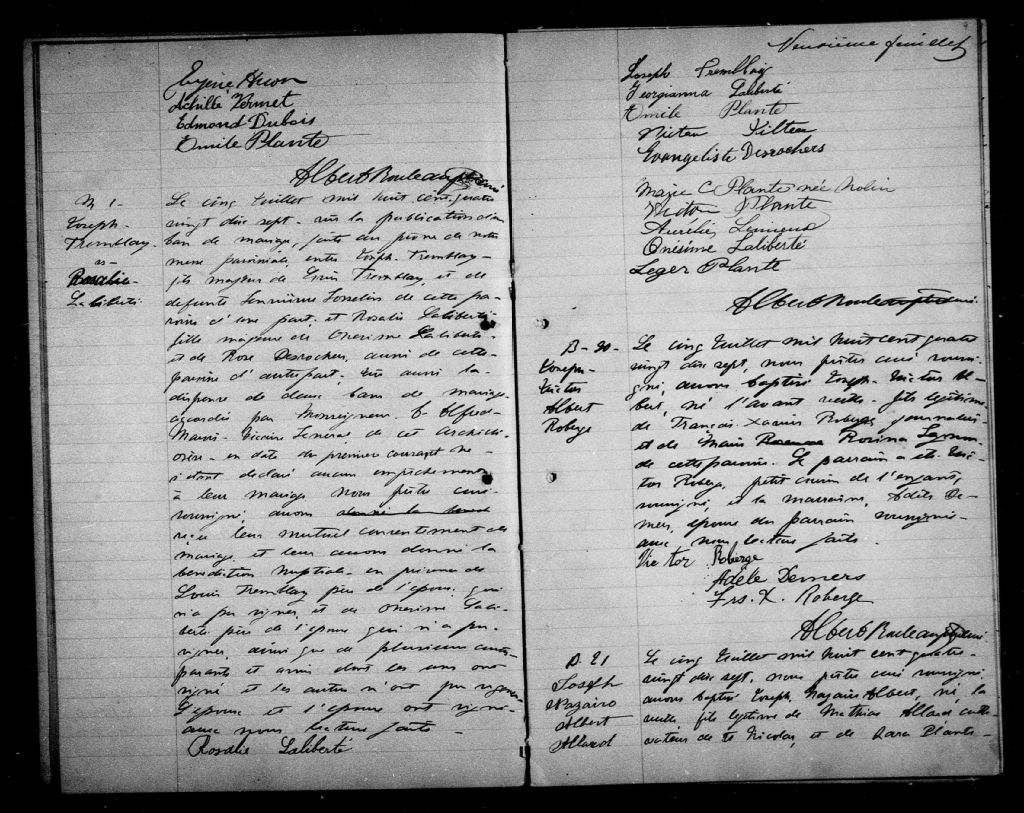 Eugène Huon
Achille Vermet
Edmond Dubois
Emile Plante
Albert Rouleau ptre curé
M 1-
Joseph-
Tremblay-
&-
Rosalie-
Laliberté
Le cinq Juillet mil huit cent quatre
vingt dix sept- vu la publication d'un
ban de mariage, faite au prône de notre
messe paroissiale, entre Joseph-Tremblay-
fils majeur de Louis Tremblay, et de
defunte de cette pa-
roisse d'une part, et Rosalie Laliberté
fille majeure de Onesime Laliberté-
et de Rose Desrochers, aussi de cette-
paroisse d'autre part, Vu aussi la-
dispense de deux bans de mariage-
accordée par Monseigneur C. Alfred
Marois- Vicaire General de cet Archidi-
ocèse- en date du premier courant ne-
s'étant déclaré aucun empêchement
à leur mariage Nous prêtre curé-
soussigné, avons
reçu leur mutuel consentement de
mariage et leur avons donné la
benediction nuptiale- en présence de
Louis Tremblay père de l'époux, qui
n'a pu signer, et de Onesime Lali-
berté père de l'épouse qui n'a pu-
signer, ainsi que de plusieurs autres
parents et amis dont les uns ont
signé et les autres n'ont pu signer
L'epoux et l'épouse ont signé-
avec nous, lecture faite-
Rosalie Laliberté
Neuvième feuillet
Joseph Tremblay
Georgianna Laliberté
Emile Plante
Victor
Evangeliste Desrochers
Marie C Plante née Nolin
Victor Plante
Aurélie Lemieux
Onésime Laliberté
Leger Plante
Albert Rouleau ptre curé.
B- 20-
Joseph-
Victor
Albert
Roberge
Le cinq Juillet mil huit cent quatre-
vingt dix sept, nous prêtre curé soussi-
gné, avons baptisé Joseph-Victor Al-
bert, né l'avant veille- fils legitime-
de François-Xavier Roberge journalier
et de Marie Rosanna Rosina
de cette paroisse. Le parrain a été Vic-
tor Roberge, petit cousin de l'enfant,
soussigné, et la marraine, Adèle De-
mers, épouse du parrain soussignée-
avec nous, lecture faite.
Victor Roberge
Adèle Demers
Frs. X. Roberge
Albert Rouleau ptre curé
B. 21
Joseph
Nazaire
Albert
Allard
Le cinq Juillet mil huit cent quatre-
vingt dix sept, nous prêtre curé soussigné,
avons baptisé Joseph, Nazaire Albert, né la
veille fils legitime de Mathias Allard culti-
vateur de St Nicolas, et de Plante-